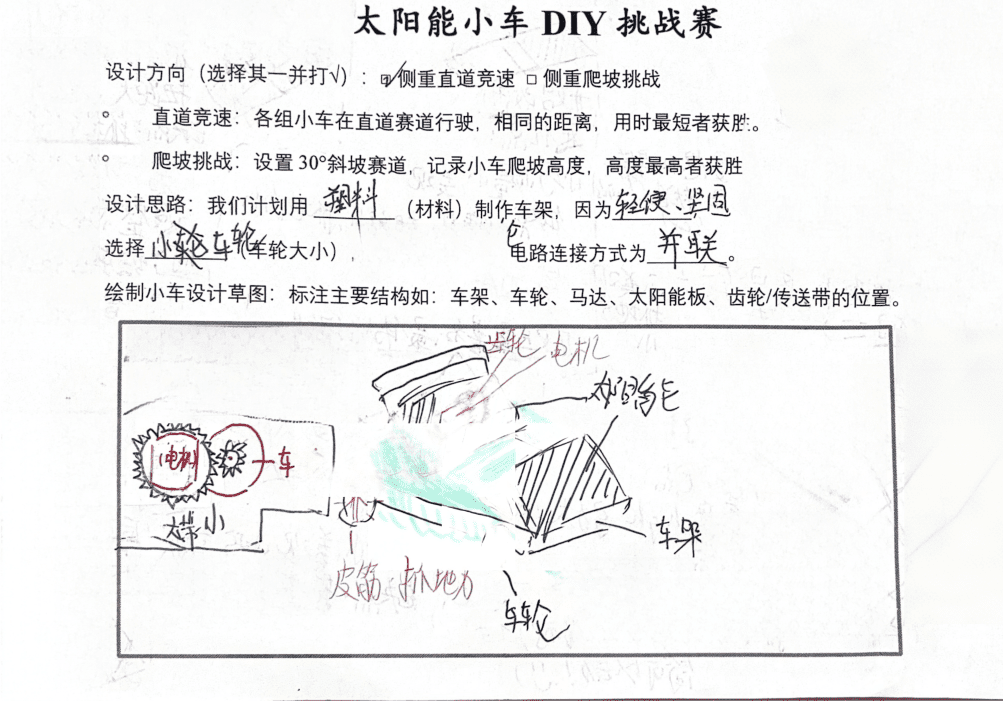 太阳能小车 DIY 挑战赛
设计方向（选择其一并打√）：☑侧重直道竞速 □侧重爬坡挑战
直道竞速：各组小车在直道赛道行驶，相同的距离，用时最短者获胜。
爬坡挑战：设置 30°斜坡赛道，记录小车爬坡高度，高度最高者获胜
设计思路：我们计划用 塑料 （材料）制作车架，因为轻便、坚固
选择 小轮车轮（车轮大小）， 电路连接方式为 并联 。
绘制小车设计草图：标注主要结构如：车架、车轮、马达、太阳能板、齿轮/传送带的位置。
齿轮 电机
太阳能
电机
车
大带小
车架
皮筋 抓地力
车轮